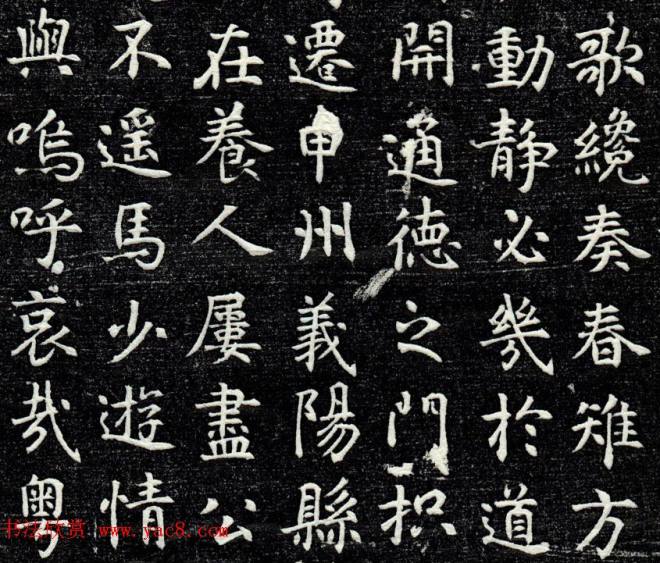 歌纔奏春雉方
動静必幾於道
開通德之門抧
遷申州義陽縣
在養人屢盡公
不遥馬少遊情
輿嗚呼哀哉粤
书法欣赏 www.yac8.com